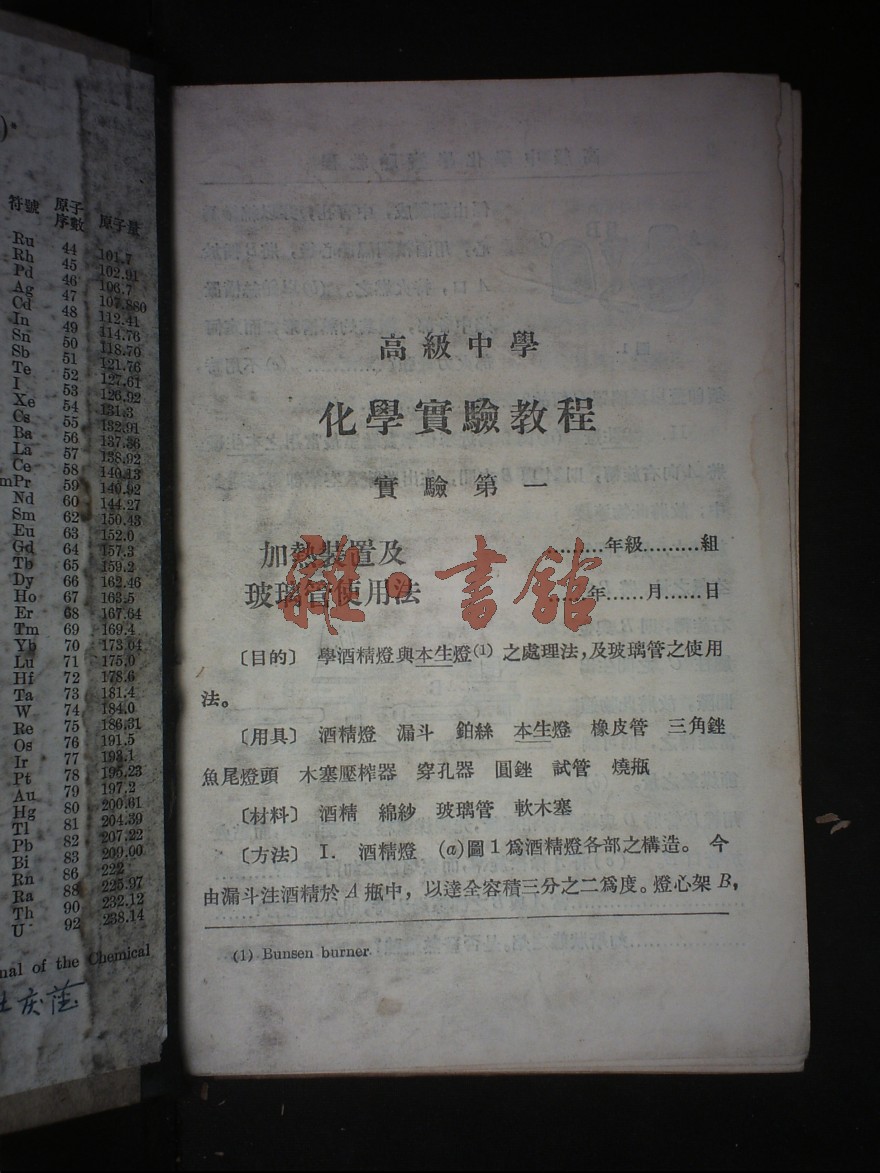 符號 原子序數 原子量
Ru 44 101.7
Rh 45 102.91
Pd 46 106.7
Ag 47 107.880
Cd 48 112.41
In 49 114.76
Sn 50 118.70
Sb 51 121.76
Te 52 127.61
I 53 126.92
Xe 54 131.3
Cs 55 132.91
Ba 56 137.36
La 57 138.92
Ce 58 140.13
Pr 59 140.92
Nd 60 144.27
Sm 62 150.43
Eu 63 152.0
Gd 64 157.3
Tb 65 159.2
Dy 66 162.46
Ho 67 163.5
Er 68 167.64
Tm 69 169.4
Yb 70 173.04
Lu 71 175.0
Hf 72 178.6
Ta 73 181.4
W 74 184.0
Re 75 186.31
Os 76 191.5
Ir 77 193.1
Pt 78 195.23
Au 79 197.2
Hg 80 200.61
Tl 81 204.39
Pb 82 207.22
Bi 83 209.00
Rn 86 222
Ra 88 225.97
Th 90 232.12
U 92 238.14
nal of the Chemical
高級中學
化學實驗教程
實驗第一
加熱裝置及
玻璃管使用法
………年級………組
……年……月……日
〔目的〕 學酒精燈與本生燈(1) 之處理法,及玻璃管之使用
法。
〔用具〕 酒精燈 漏斗 鉑絲 本生燈 橡皮管 三角銼
魚尾燈頭 木塞壓榨器 穿孔器 圓銼 試管 燒瓶
〔材料〕 酒精 綿紗 玻璃管 軟木塞
〔方法〕 I. 酒精燈 (a)圖1爲酒精燈各部之構造。 今
由漏斗注酒精於 A 瓶中, 以達全容積三分之二爲度。燈心架 B,
(1) Bunsen burner
雜·書館